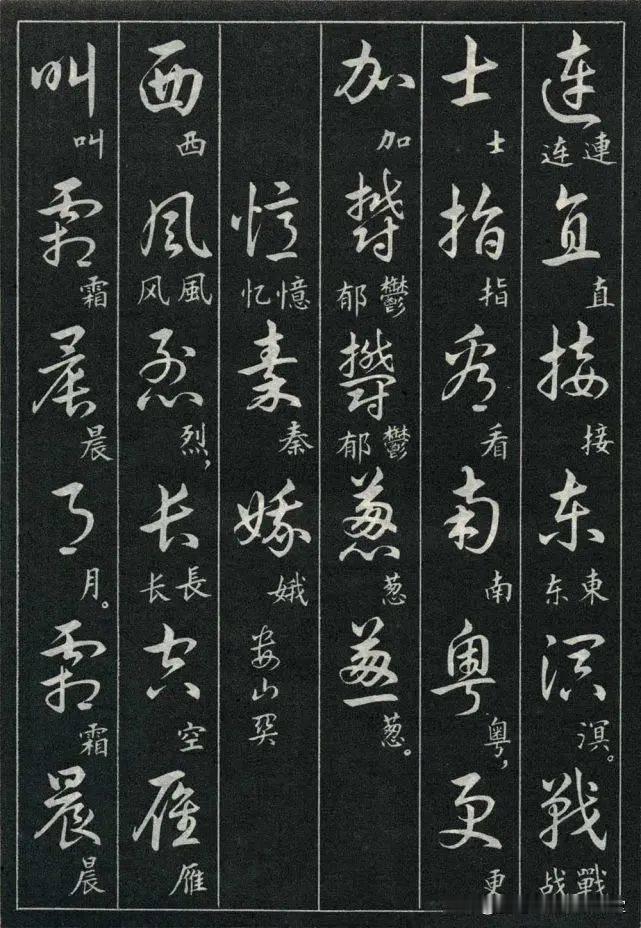 连直接东溟战
連连直接東东溟。戰战
士指看南粤更
士指看南粤，更
加郁郁葱葱
加鬱郁鬱郁葱葱。
忆秦娥娄山关
憶忆秦娥
西风烈长空雁
西風风烈，長长空雁
叫霜晨月霜晨
叫霜晨月。霜晨